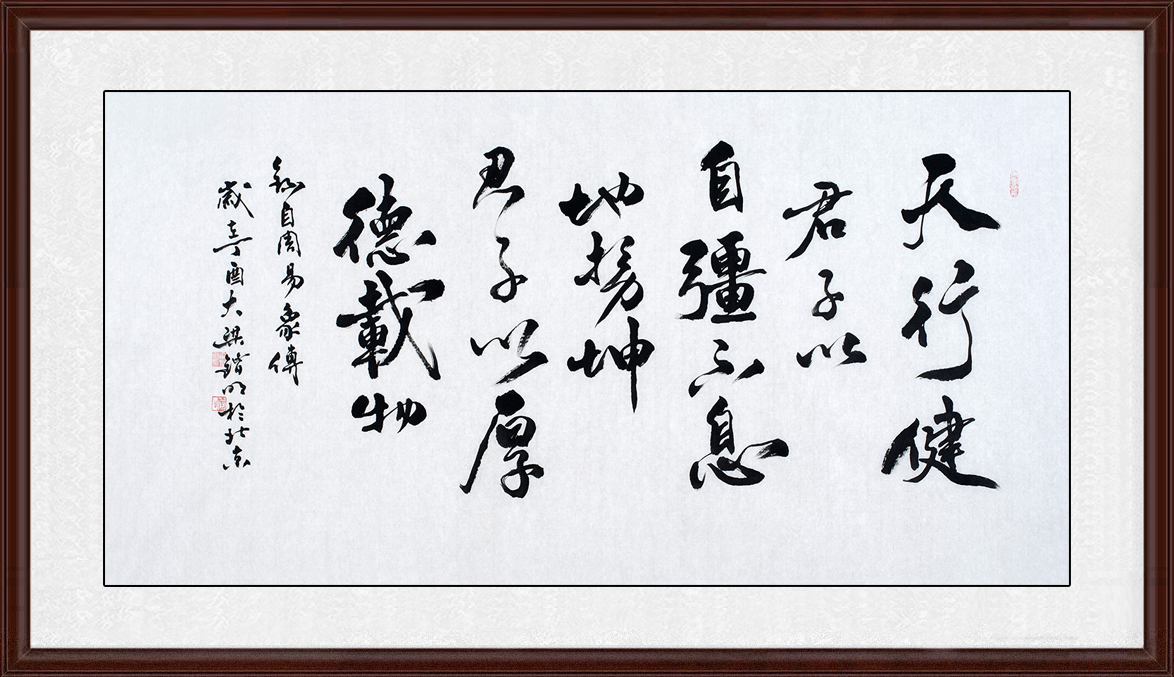 天行健
君子以
自彊不息
地势坤
君子以厚
德載物
錄自周易象傳
歲辛酉大梁鍇明於北京